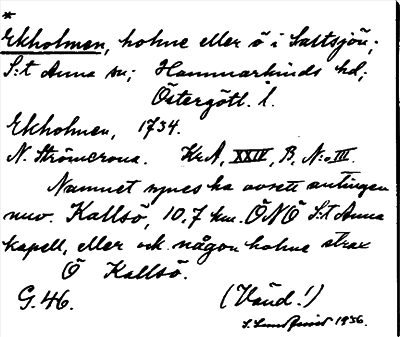 *
Ekholmen, holme eller ö i Saltsjön;
S:t Anna sn; Hammarkinds hd;
Östergötl. l.
Ekholmen, 1734.
N. Strömcrona. KrA, XXIV, B, N:o III.
Namnet synes ha avsett antingen
nuv. Kallsö, 10,7 km. ÖNÖ S:t Anna
kapell, eller ock någon holme strax
Ö Kallsö.
G. 46. (Vänd!)
1936.